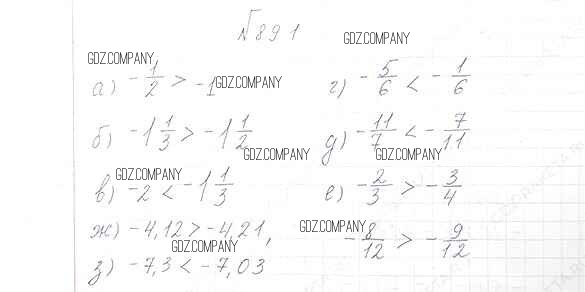 №891
GDZ.COMPANY
GDZ.COMPANY
а) -1/2 > -1
GDZ.COMPANY
г) -5/6 < -1/6
б) -1 1/3 > -1 1/2
д) -11/7 < -7/11
GDZ.COMPANY
GDZ.COMPANY
GDZ.COMPANY
в) -2 < -1 1/3
е) -2/3 > -3/4
ж) -4,12 > -4,21,
GDZ.COMPANY
-8/12 > -9/12
GDZ.COMPANY
з) -7,3 < -7,03